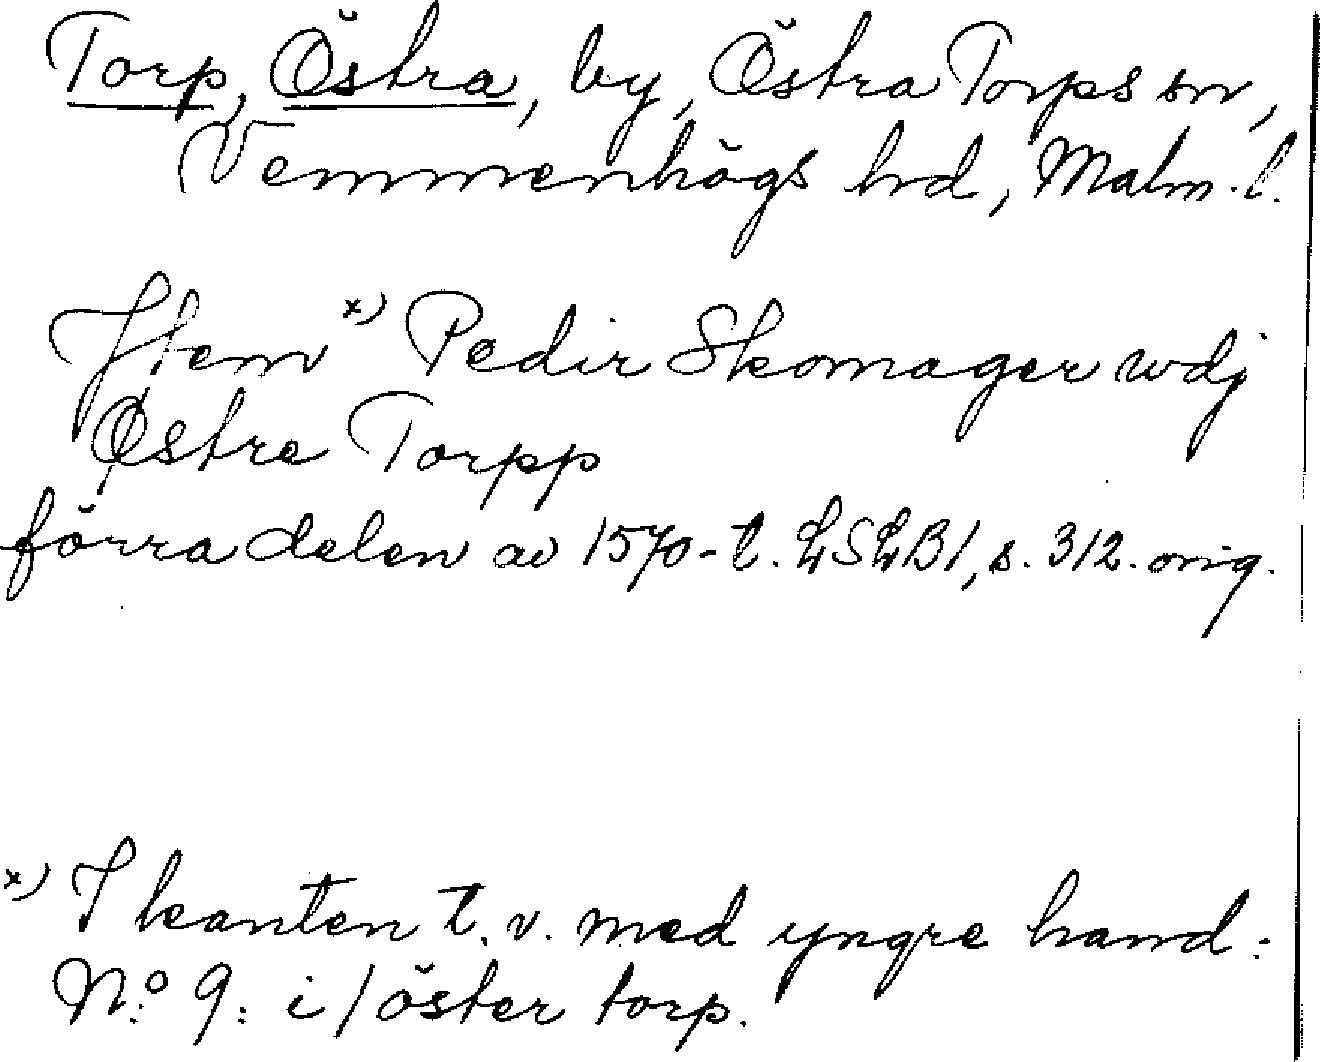 Torp, Östra, by, Östra Torps sn,
Vemmenhögs hrd, Malm. l.
Jtem x) Pedir Skomager wdj
Østre Torpp
förra delen av 1570-t. LSLB1, s. 312. orig.
x) I kanten t. v. med yngre hand:
N:o 9: i / öster torp.